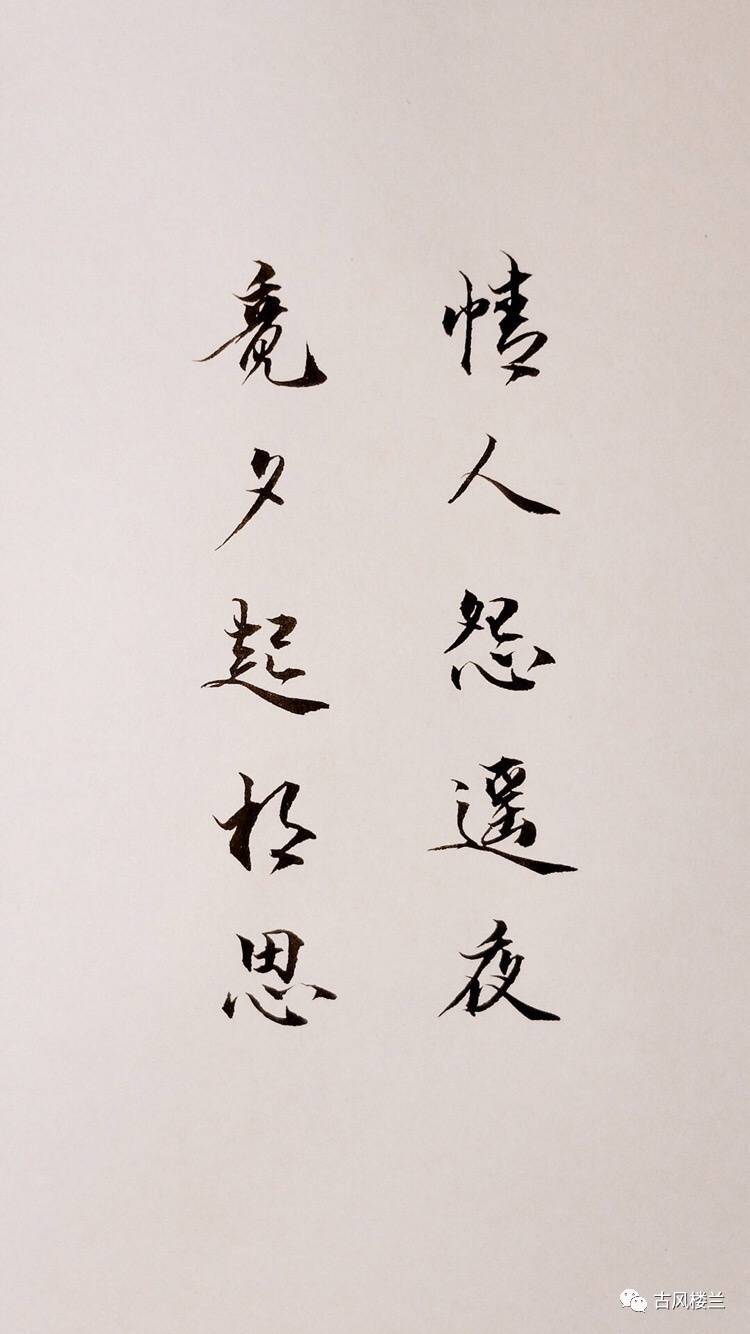 情人怨遥夜
竟夕起相思
古风楼兰